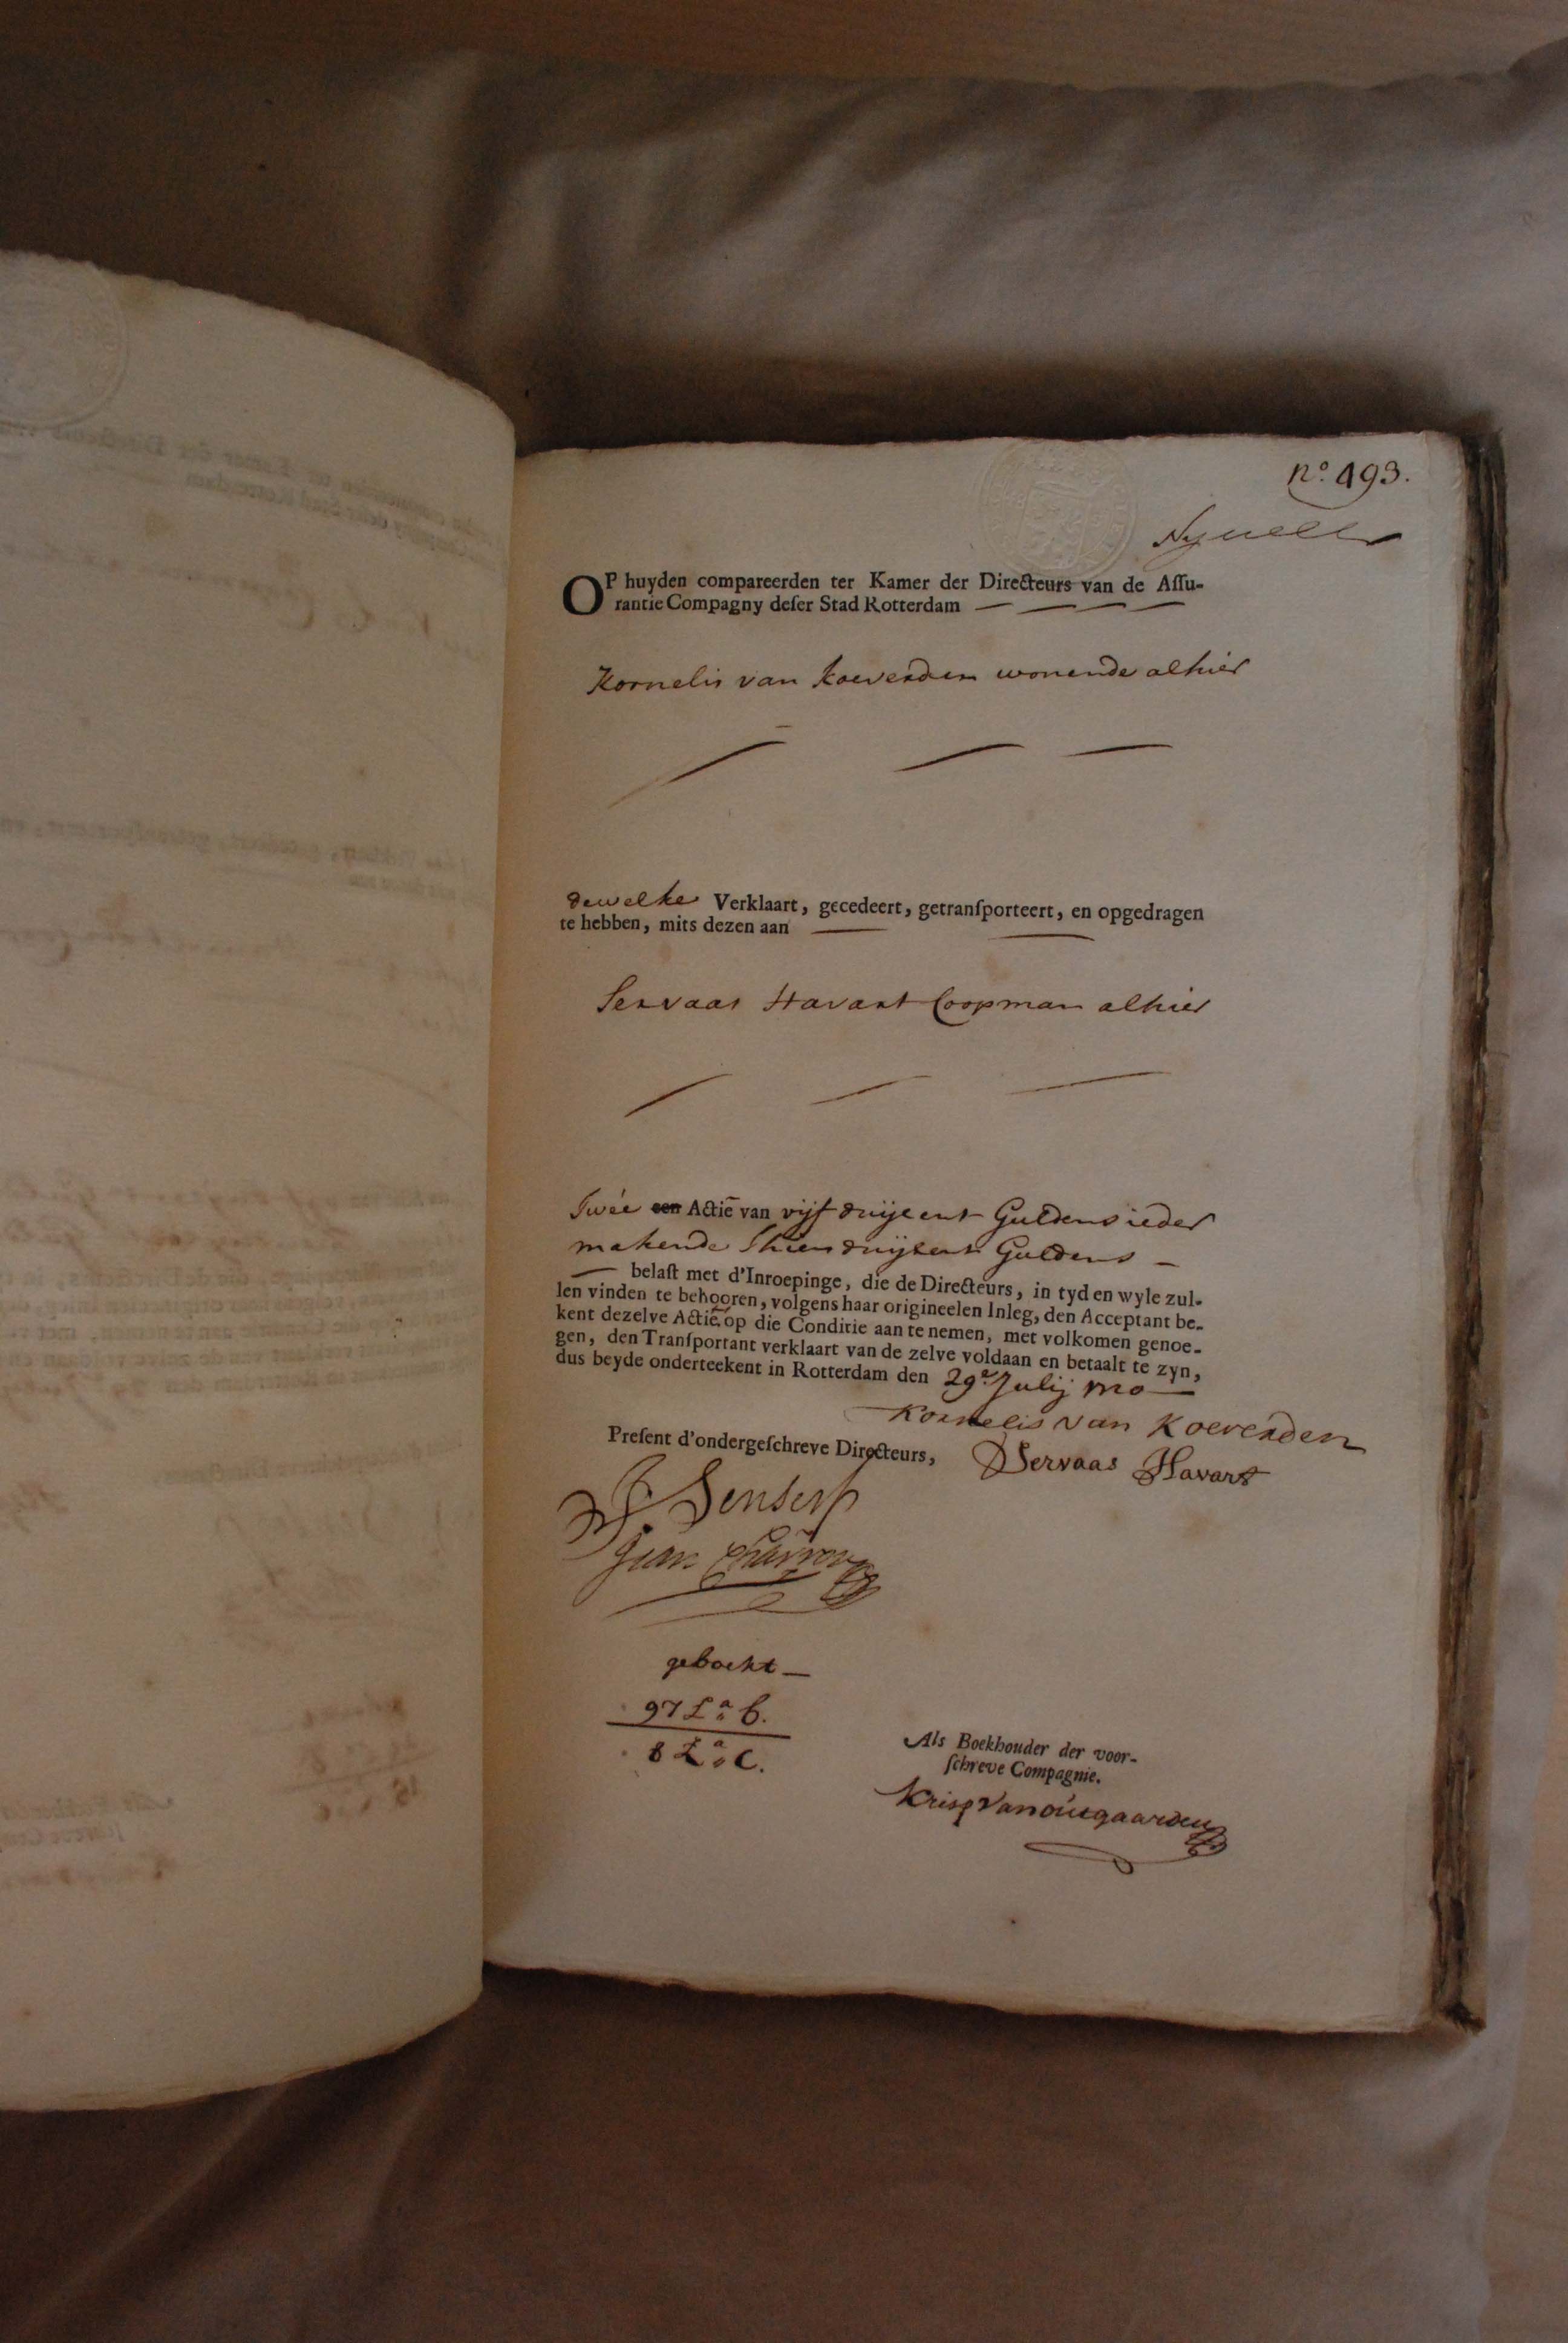 nº 493.
OP huyden compareerden ter Kamer der Directeurs van de Aſſu-
rantie Compagny deſer Stad Rotterdam
Kornelis van Koeverden wonende alhier
dewelke Verklaart, gecedeert, getranſporteert, en opgedragen
te hebben, mits dezen aan
Servaas Havart Coopman alhier
Twée een Actiē van vijf duijsent Guldens ieder
makende Thien duijsent Guldens
belaſt met d'Inroepinge, die de Directeurs, in tyd en wyle zul-
len vinden te behooren, volgens haar origineelen Inleg, den Acceptant be-
kent dezelve Actiē, op die Conditie aan te nemen, met volkomen genoe-
gen, den Tranſportant verklaart van de zelve voldaan en betaalt te zyn,
dus beyde onderteekent in Rotterdam den 29e Julij 1720
Kornelis van Koeverden
Preſent d'ondergeſchreve Directeurs, Servaas Havart
Jean Charron
geboekt
97 La B.
8 La C.
Als Boekhouder der voor-
ſchreve Compagnie.
Krisp van outgaarden